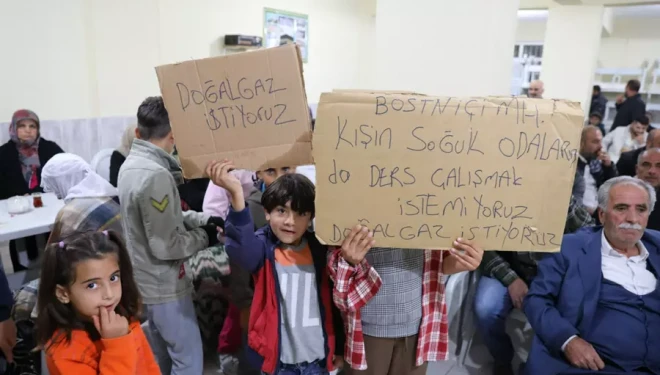 DOĞALGAZ
İSTİYORUZ
BOSTNİÇİ MH.
KIŞIN SOĞUK ODALAR
da DERS ÇALIŞMAK
İSTEMİYORUZ
DOĞALGAZ İSTİYORUZ